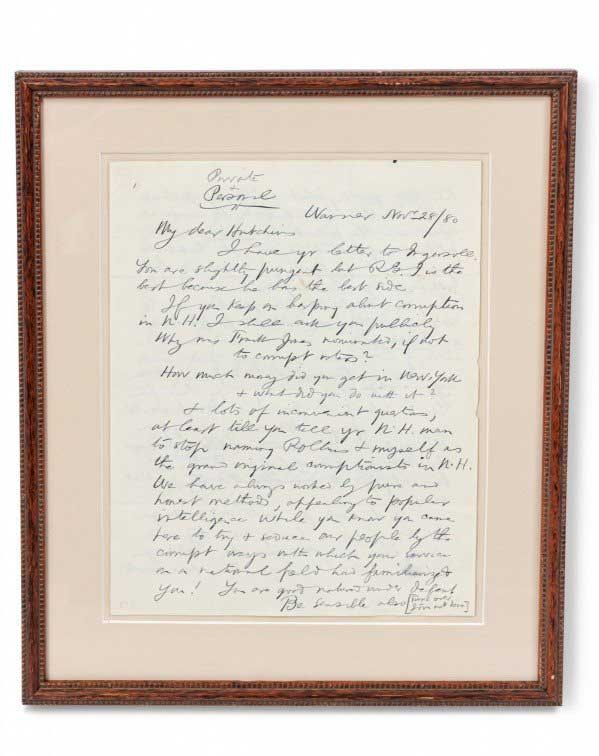 Private
+
Personal
Warner Novr 28/80
My dear Hutchins
I have yr letter to Ingersoll.
You are slightly pungent but R.G.I. is the
best because he has the best side
If you keep on harping about corruption
in N.H. I shall ask you publicly
Why was Frank Jones nominated, if not
to corrupt voters?
How much money did you get in New York
+ what did you do with it?
+ lots of inconvenient questions,
at least tell you tell yr N.H. man
to stop naming Rollins + myself as
the grand original corruptionists in N.H.
We have always worked by pure and
honest methods, appealing to popular
intelligence while you know you came
here to try + seduce our people by the
corrupt ways with which your service
in a national field had familiarized
you! You are good natured under defeat
Be sensible also